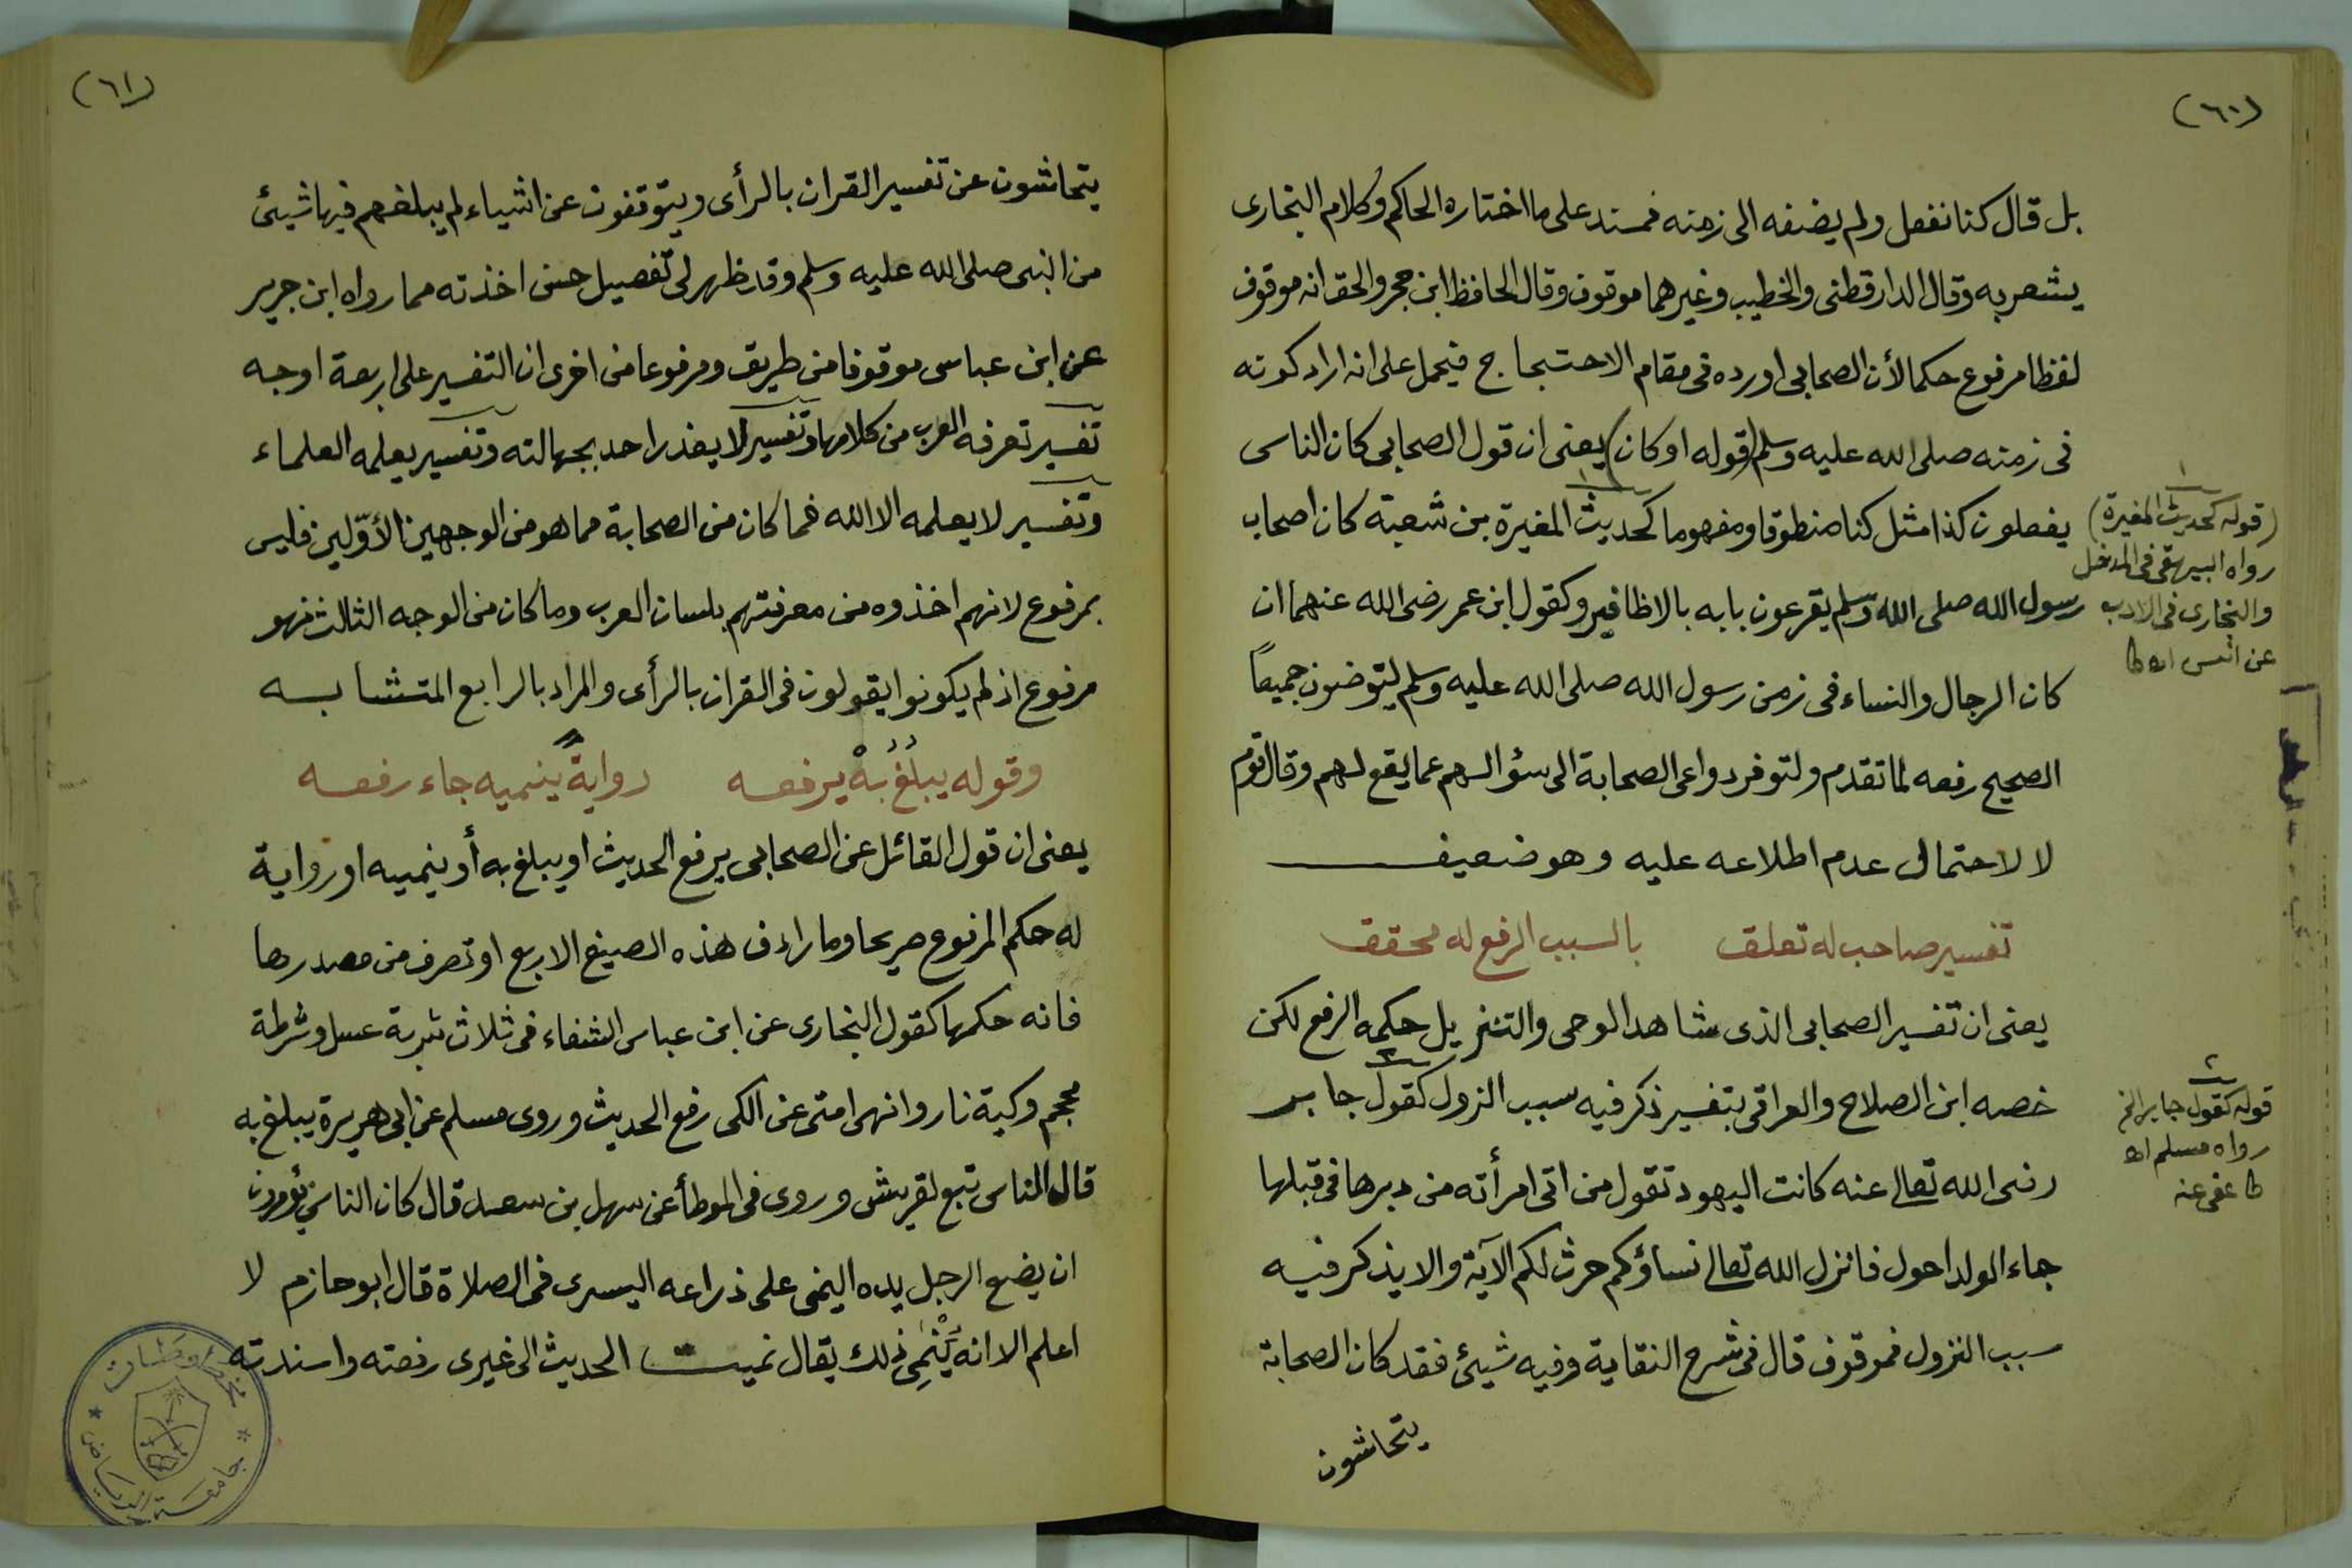 (٦٠)
بل قال كنا نفعل ولم يضفه الى زمنه فمسند على ما اختاره الحاكم وكلام البخارى
يشعر به وقال الدارقطنى والخطيب وغيرهما موقوف وقال الحافظ ابن حجر والحق انه موقوف
لفظا مرفوع حكما لأن الصحابى اورده فى مقام الاحتجاج فيحمل على انه اراد كونه
فى زمنه صلى الله عليه وسلم (قوله او كان) يعنى ان قول الصحابى كان الناس
يفعلون كذا مثل كنا منطوقا ومفهوما كحديث المغيرة بن شعبة كان اصحاب
رسول الله صلى الله وسلم يقرعون بابه بالاظافير وكقول ابن عمر رضى الله عنهما ان
كان الرجال والنساء فى زمن رسول الله صلى الله عليه وسلم ليتوضئون جميعاً
الصحيح رفعه لما تقدم ولتوفر دواعى الصحابة الى سؤالهم عما يقع لهم وقال قوم
لا لاحتمال عدم اطلاعه عليه وهو ضعيف
تفسير صاحب له تعلق بالسبب الرفع له محقق
يعنى ان تفسير الصحابى الذى شاهد الوحى والتنزيل حكمه الرفع لكن
خصه ابن الصلاح والعراقى بتفسير ذكر فيه سبب النزول كقول جابر
رضى الله تعالى عنه كانت اليهود تقول من اتى امرأته من دبرها فى قبلها
جاء الولد احول فانزل الله تعالى نساؤكم حرث لكم الآية والا يذكر فيه
سبب النزول فموقوف قال فى شرح النقاية وفيه شيئ فقد كان الصحابة
يتحاشون
١
(قوله كحديث المغيرة)
رواه البيهقى فى المدخل
والبخارى فى الادب
عن انس اه ط
٢
قوله كقول جابر الخ
رواه مسلم اه
ط عفى عنه
(٦١)
يتحاشون عن تفسير القران بالرأى ويتوقفون عن اشياء لم يبلغهم فيها شيئ
من النبى صلى الله عليه وسلم وقد ظهر لى تفصيل حسن اخذته مما رواه ابن جرير
عن ابن عباس موقوفا من طريق ومرفوعا من اخرى ان التفسير على اربعة اوجه
تفسير تعرفه العرب من كلامها وتفسير لا يعذر احد بجهالته وتفسير يعلمه العلماء
وتفسير لا يعلمه الا الله فما كان من الصحابة مما هو من الوجهين الأوّلين فليس
بمرفوع لانهم اخذوه من معرفتهم بلسان العرب وما كان من الوجه الثالث فهو
مرفوع اذ لم يكونوا يقولون فى القران بالرأى والمراد بالرابع المتشابه
وقوله يبلُغُ بهْ يرفعه روايةً ينميه جاء رفعه
يعنى ان قول القائل عن الصحابى يرفع الحديث او يبلغ به أو ينميه او رواية
له حكم المرفوع صريحا وما رادف هذه الصيغ الاربع او تصرف من مصدرها
فانه حكمها كقول البخارى عن ابن عباس الشفاء فى ثلاث شربة عسل وشرطة
محجم وكية نار وانهى امتى عن الكى رفع الحديث وروى مسلم عن ابى هريرة يبلغ به
قال الناس تبع لقريش وروى فى الموطأ عن سهل بن سعد قال كان الناس يؤمرون
ان يضع الرجل يده اليمنى على ذراعه اليسرى فى الصلاة قال ابو حازم لا
اعلم الا انه يَنْمِى ذلك يقال نميت الحديث الى غيرى رفعته واسندته
مخطوطات
جامعة الرياض